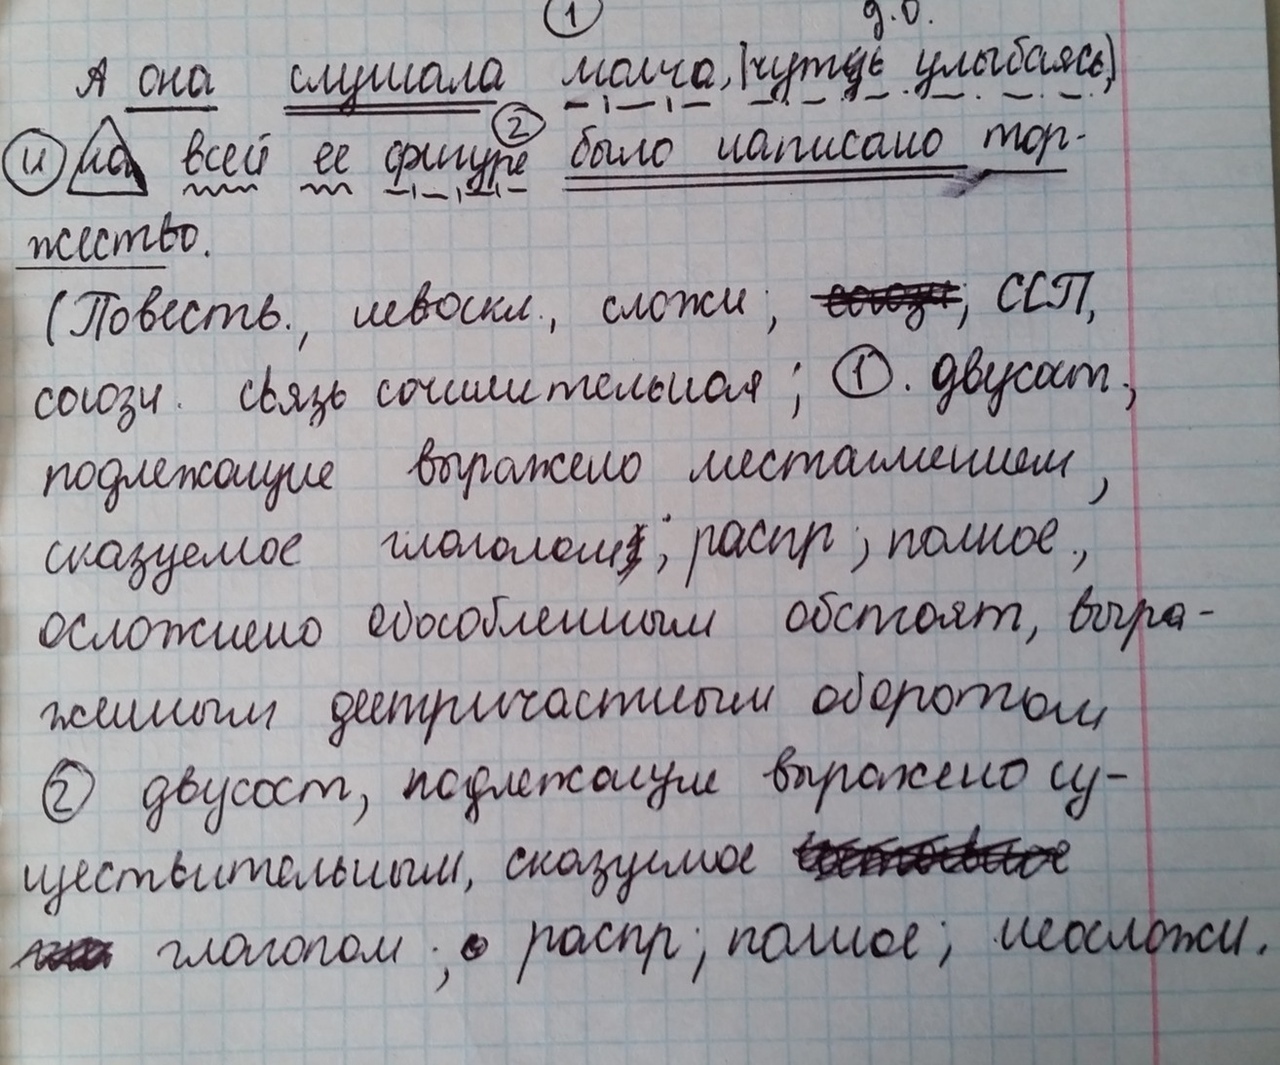 ① д.о.
А она слушала молча, |чуть улыбаясь,|
(и) на всей ее фигуре ② было написано тор-
жество.
(Повеств., невоскл., сложн; ССП,
союзн. связь сочинительная; ①. двусост.;
подлежащие выражено местоимением,
сказуемое глаголом; распр; полное.,
осложнено обособленным обстоят, выра-
женным деепричастным оборотом
② двусост, подлежащие выражено су-
ществительным, сказуемое
глаголом; распр; полное; неосложн.